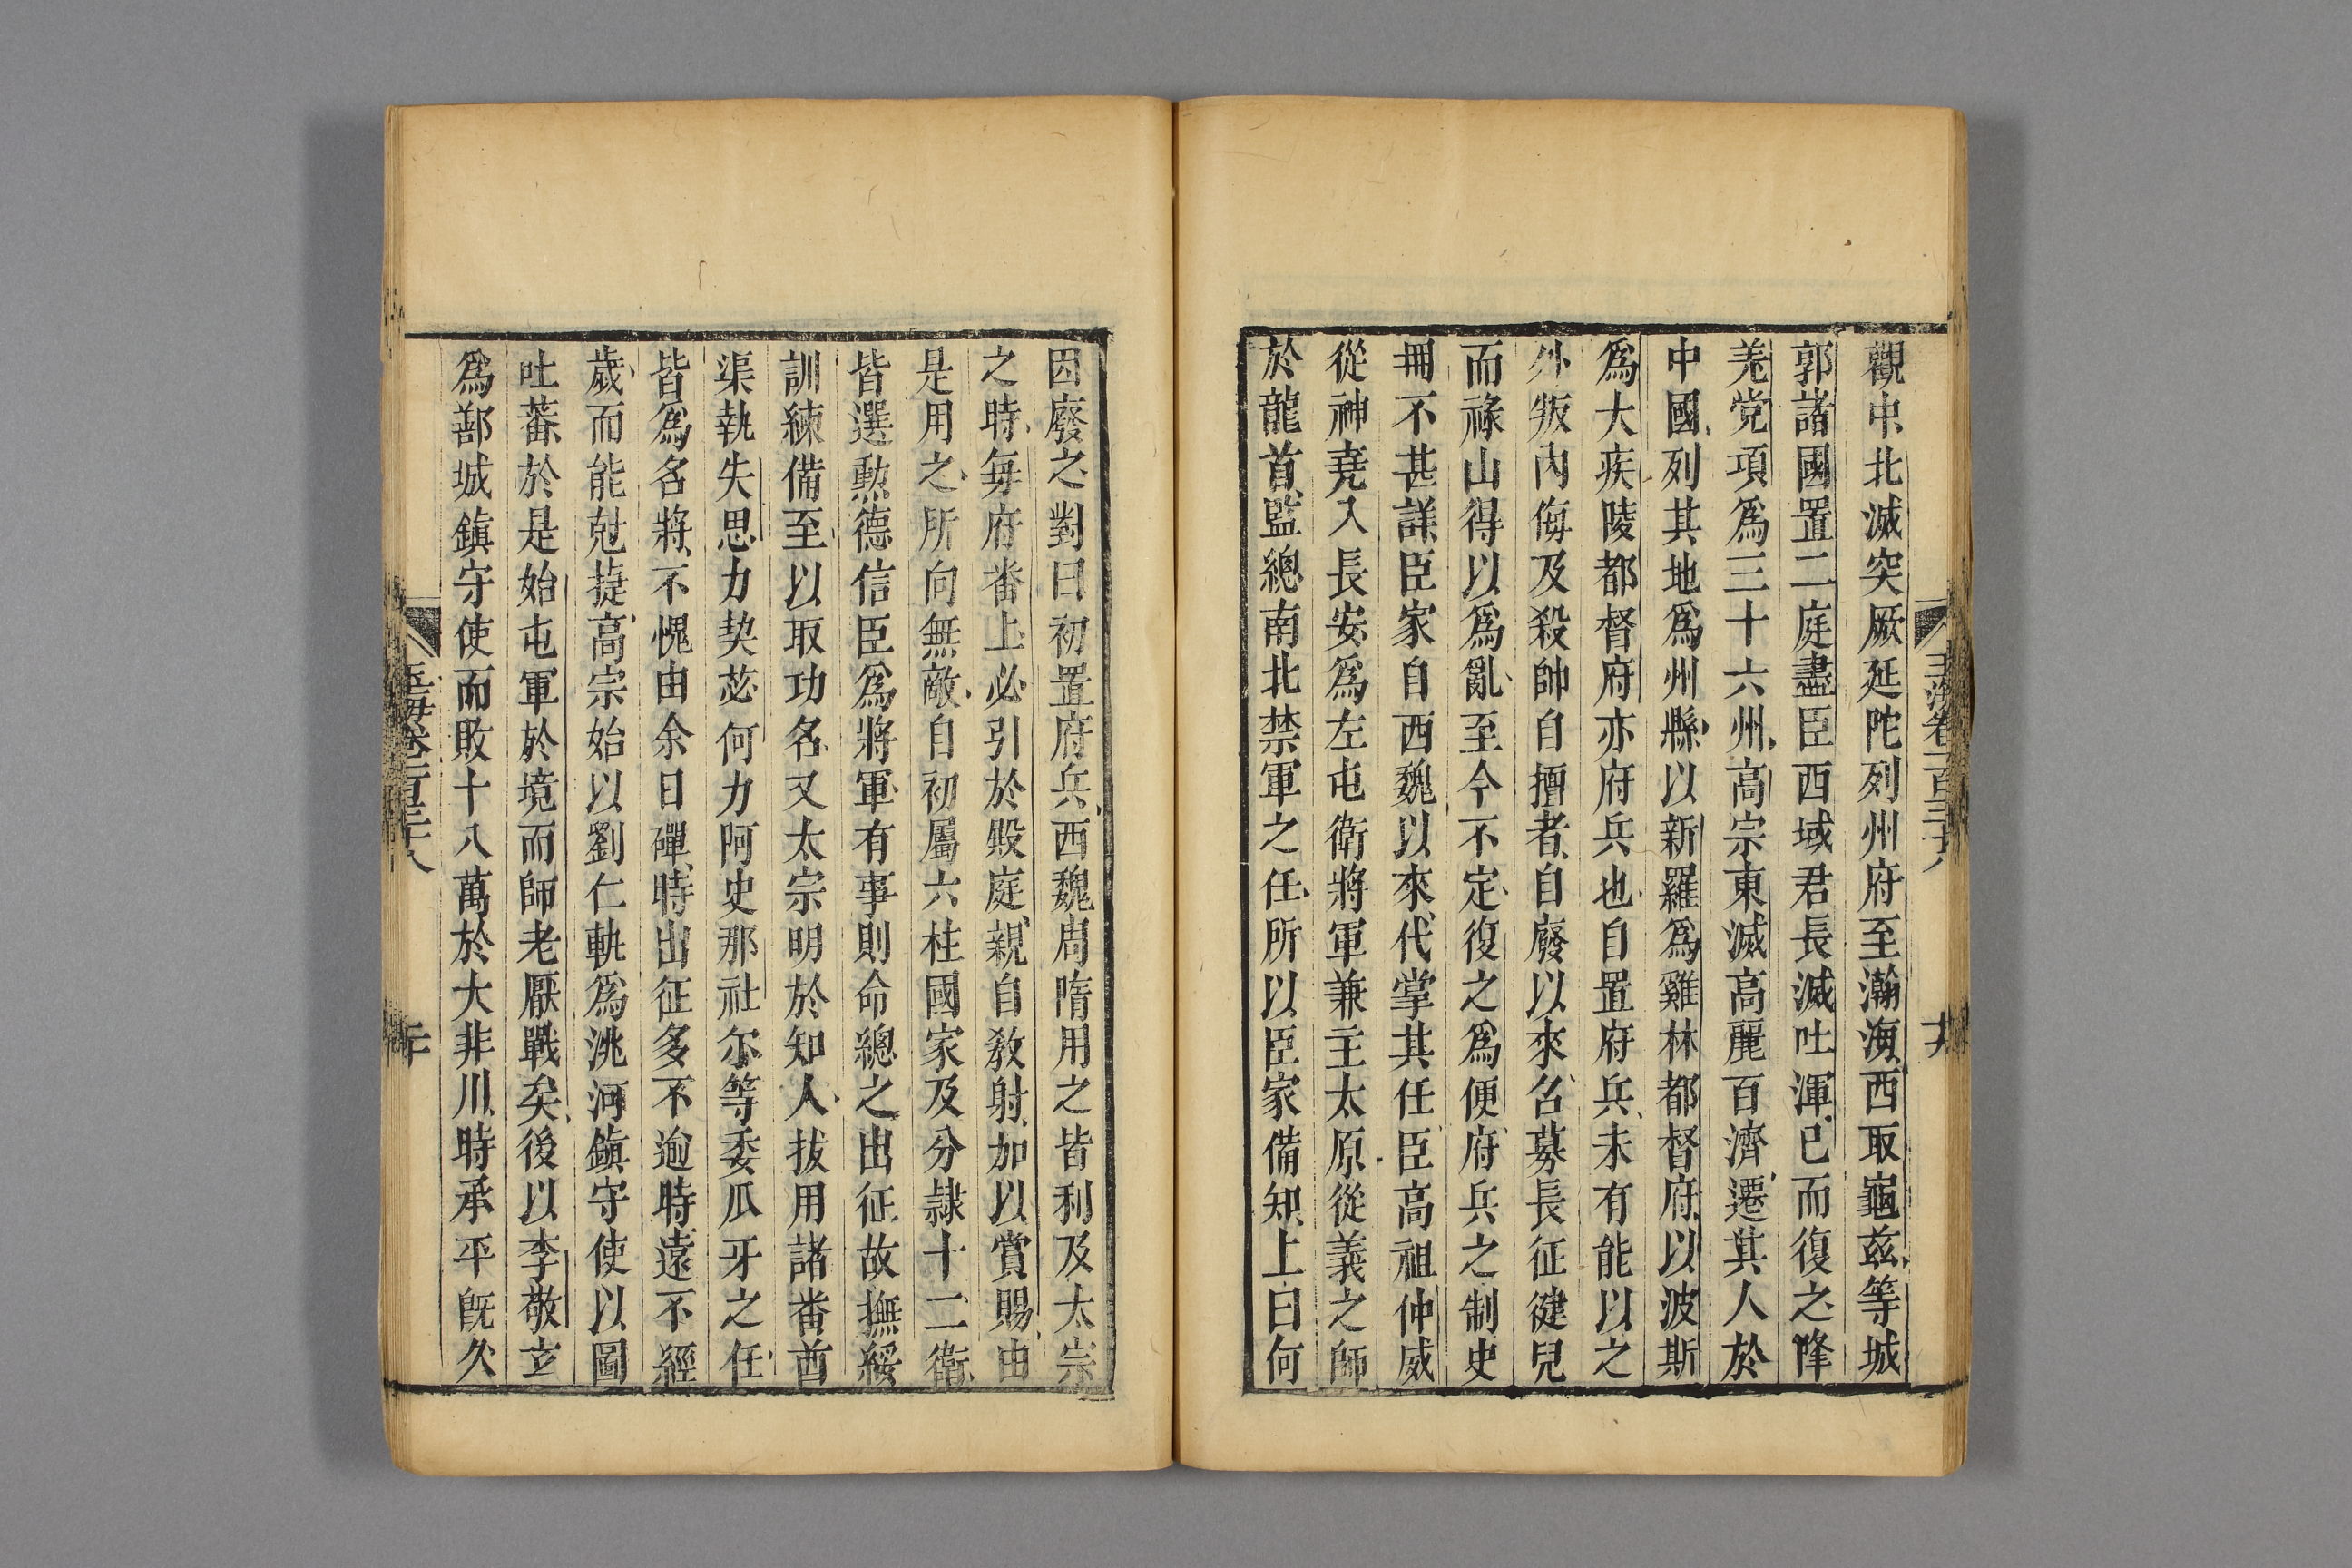 觀中北滅突厥延陀列州府至瀚海西取龜兹等城
郭諸國置二庭盡臣西域君長滅吐渾已而復之降
羌党項爲三十六州高宗東滅高麗百濟遷其人於
中國列其地爲州縣以新羅爲雞林都督府以波斯
爲大疾陵都督府亦府兵也自置府兵未有能以之
外叛内侮及殺帥自擅者自廢以來召募長征健兒
而祿山得以爲亂至今不定復之爲便府兵之制史
冊不甚詳臣家自西魏以來代掌其任臣高祖仲威
從神堯入長安爲左屯衛將軍兼主太原從義之師
於龍首監總南北禁軍之任所以臣家備知上曰何
因廢之對曰初置府兵西魏周隋用之皆利及太宗
之時每府番上必引於殿庭親自教射加以賞賜由
是用之所向無敵自初屬六柱國家及分隷十二衛
皆選勲德信臣爲將軍有事則命總之出征故撫綏
訓練備至以取功名又太宗明於知人拔用諸番酋
渠執失思力契苾何力阿史那社尔等委瓜牙之任
皆爲名將不愧由余日磾時出征多不逾時遠不經
歲而能尅捷高宗始以劉仁軌爲洮河鎮守使以圖
吐蕃於是始屯軍於境而師老厭戰矣後以李敬玄
爲鄯城鎮守使而敗十八萬於大非川時承平旣久